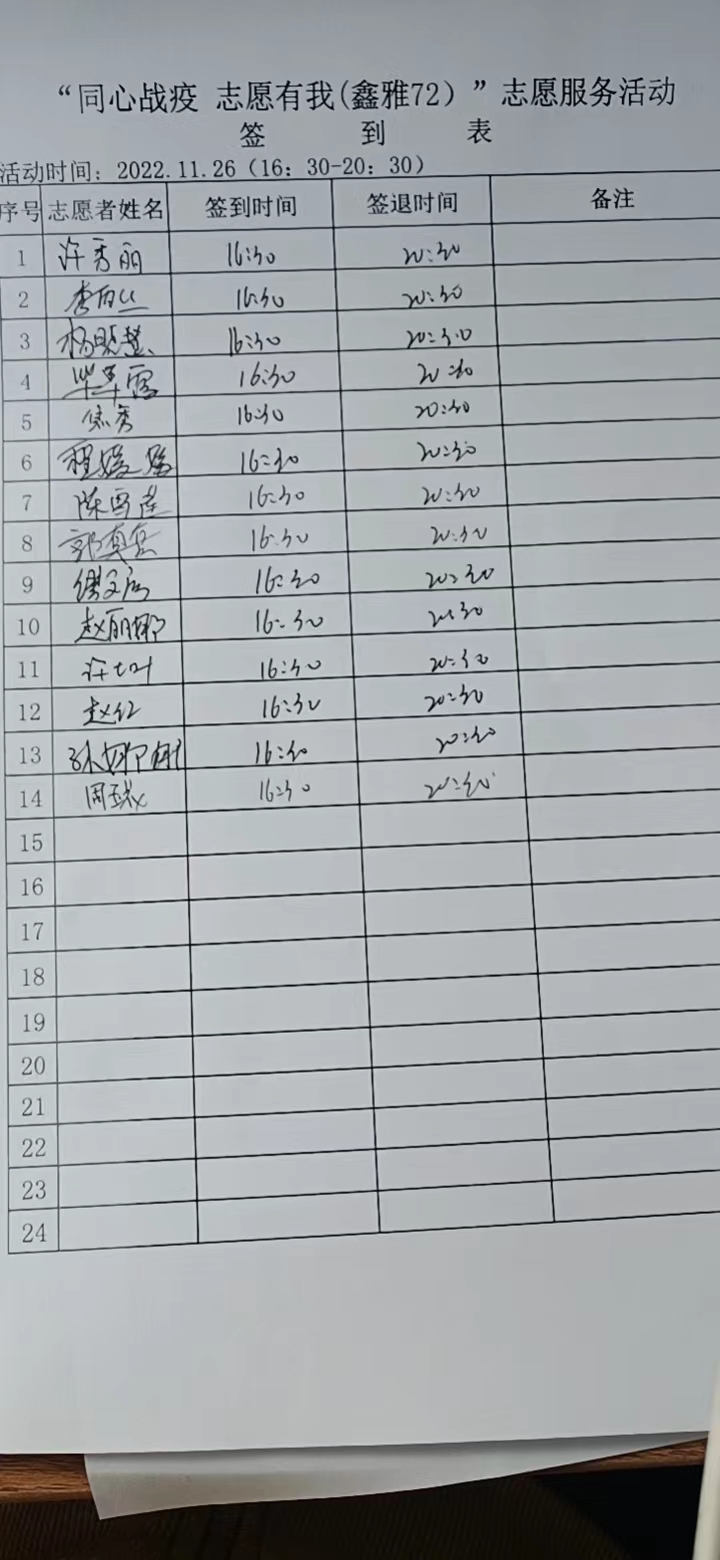 “同心战疫 志愿有我(鑫雅72）”志愿服务活动
签 到 表
活动时间：2022.11.26（16：30-20：30）
序号 志愿者姓名 签到时间 签退时间 备注
1 许秀丽 16:30 20:30
2 李 16:30 20:30
3 杨晓慧 16:30 20:30
4 毕 霞 16:30 20:30
5 焦秀 16:30 20:30
6 程嫒嫒 16:30 20:30
7 陈雪莲 16:30 20:30
8 郭真真 16:30 20:30
9 16:30 20:30
10 赵丽娜 16:30 20:30
11 许 叶 16:30 20:30
12 赵红 16:30 20:30
13 孙娜娜 16:30 20:30
14 周 16:30 20:30
15
16
17
18
19
20
21
22
23
24